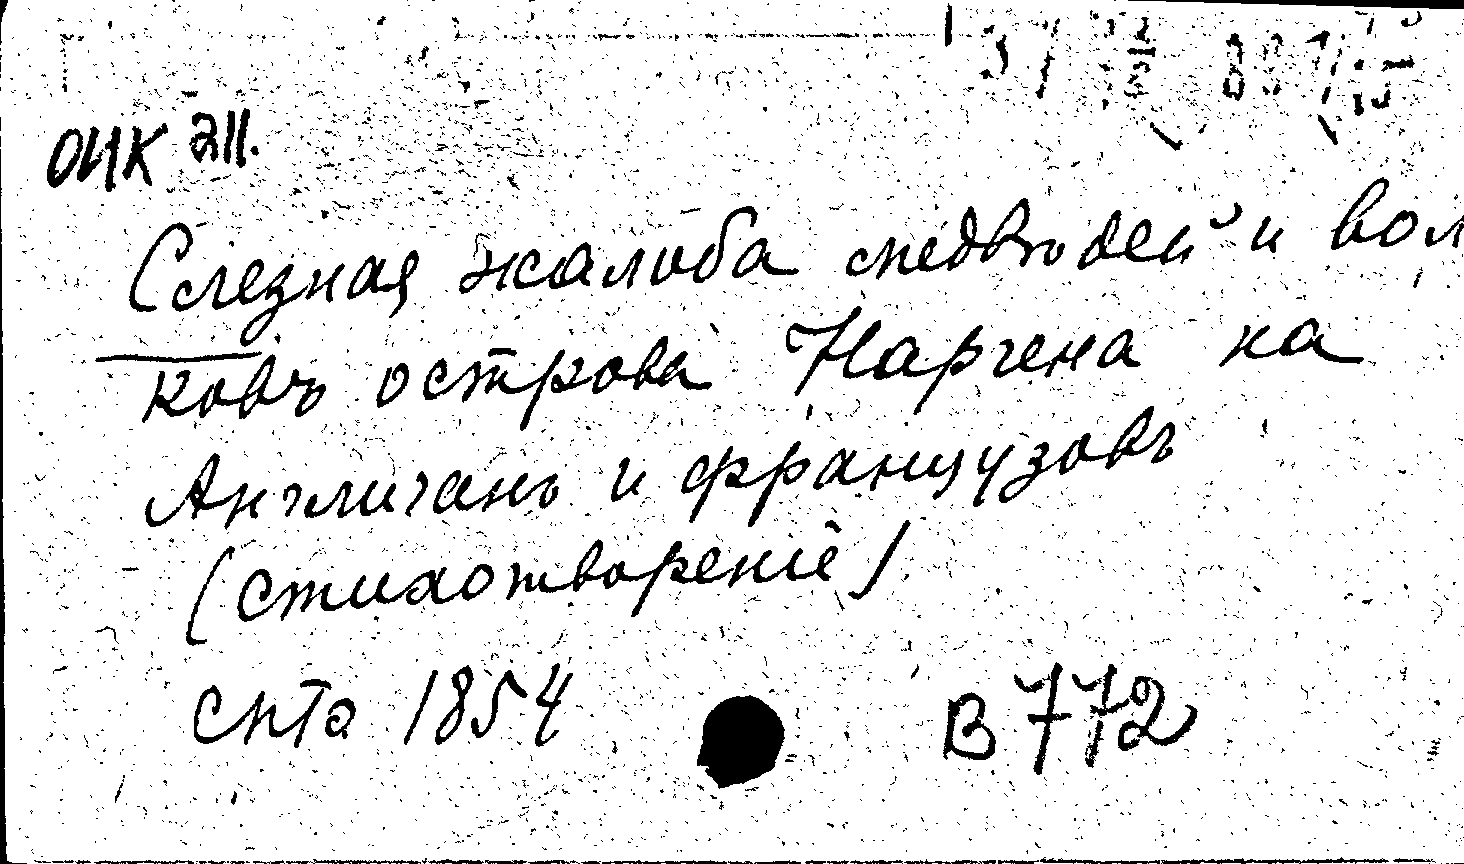 ОИК 211.
Слезная жалоба медвѣдей и вол
ковъ острова Наргена на
Англичанъ и французовъ
(стихотвореніе)
Спто 1854
В 772